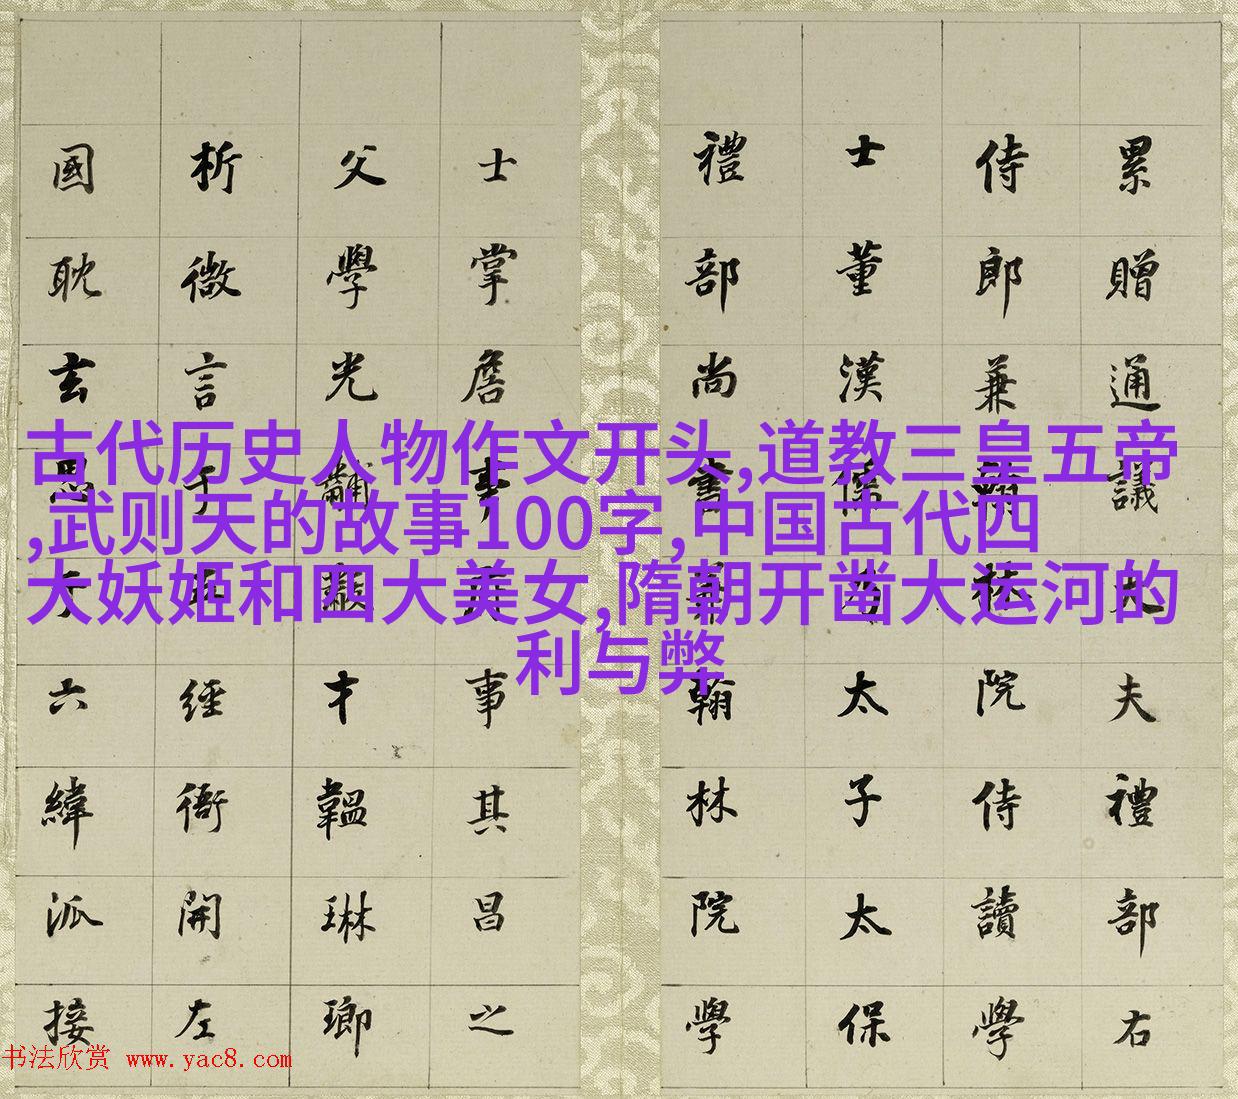 古代历史人物作文开头,道教三皇五帝
,武则天的故事100字,中国古代四
大妖姬和四大美女,隋朝开凿大运河的
利与弊
累贈通議大夫禮部右
侍郎兼翰林院侍讀學
士董漢太子太保
禮部尚書兼翰林院學
士掌詹事府事其昌之
父學光黼黻才韞琳瑯
析微言于五經衙開左
國耽玄思于六緯派接
书法欣赏 www.yac8.com